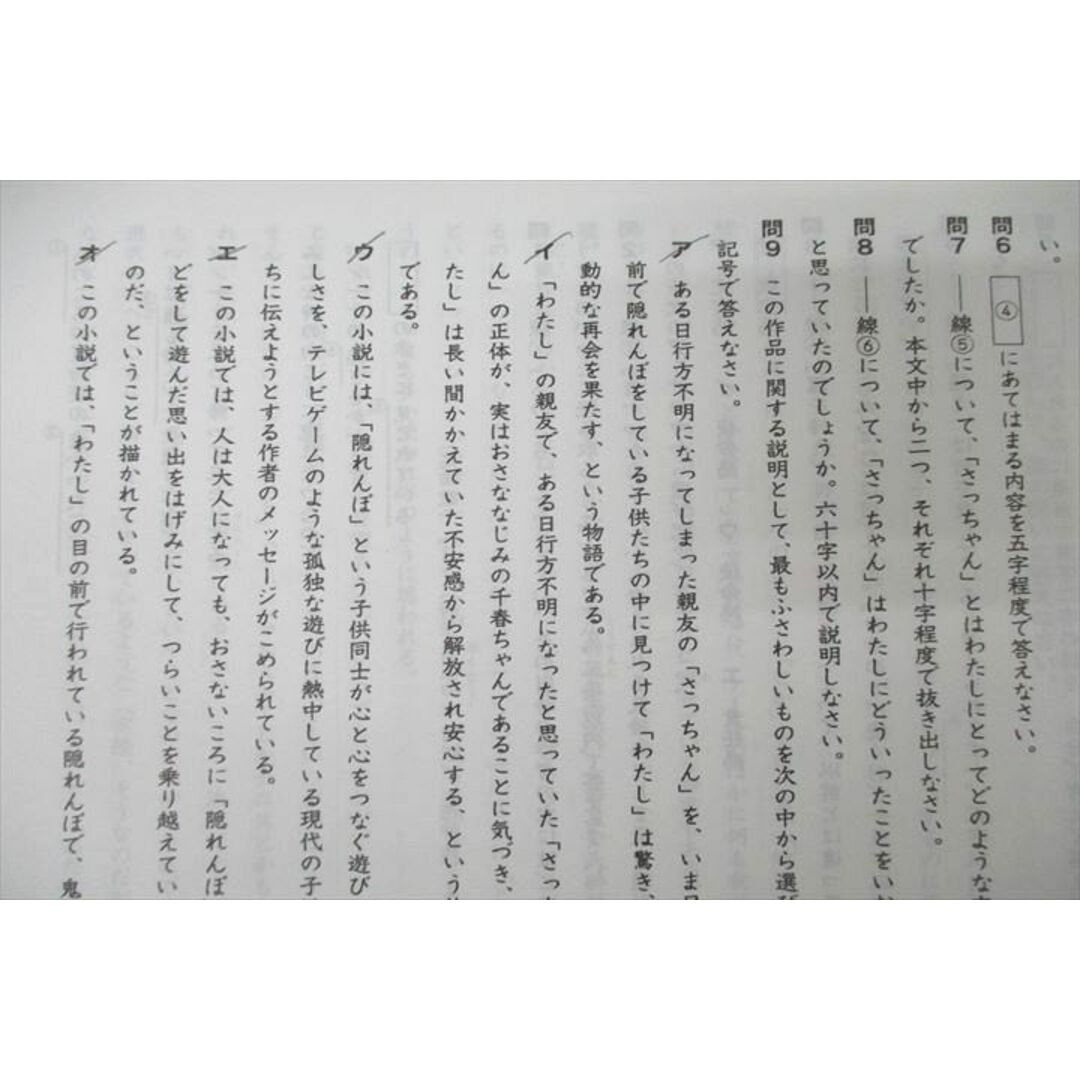 い。
問6 ④ にあてはまる内容を五字程度で答えなさい。
問7 ――線⑤について、「さっちゃん」とはわたしにとってどのような
でしたか。本文中から二つ、それぞれ十字程度で抜き出しなさい。
問8 ――線⑥について、「さっちゃん」はわたしにどういったことをい
と思っていたのでしょうか。六十字以内で説明しなさい。
問9 この作品に関する説明として、最もふさわしいものを次の中から選び
記号で答えなさい。
ア ある日行方不明になってしまった親友の「さっちゃん」を、いま目
前で隠れんぼをしている子供たちの中に見つけて「わたし」は驚き、
動的な再会を果たす、という物語である。
イ 「わたし」の親友で、ある日行方不明になったと思っていた「さっ
ん」の正体が、実はおさななじみの千春ちゃんであることに気づき、
たし」は長い間かかえていた不安感から解放され安心する、という
である。
ウ この小説には、「隠れんぼ」という子供同士が心と心をつなぐ遊び
しさを、テレビゲームのような孤独な遊びに熱中している現代の子
ちに伝えようとする作者のメッセージがこめられている。
エ この小説では、人は大人になっても、おさないころに「隠れんぼ
どをして遊んだ思い出をはげみにして、つらいことを乗り越えてい
のだ、ということが描かれている。
オ この小説では、「わたし」の目の前で行われている隠れんぼで、鬼